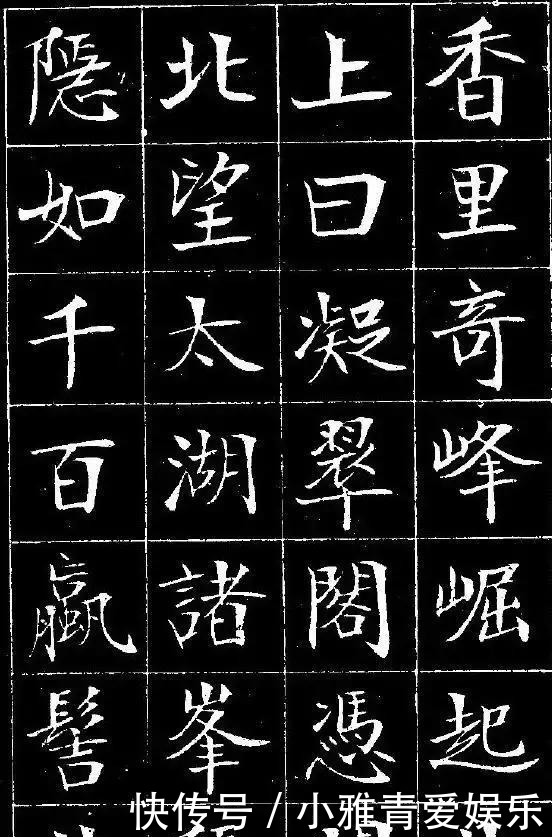 香里奇峰崛起
上曰凝翠閣憑
北望太湖諸峯
隱如千百螺髻
快传号/小雅青爱娱乐